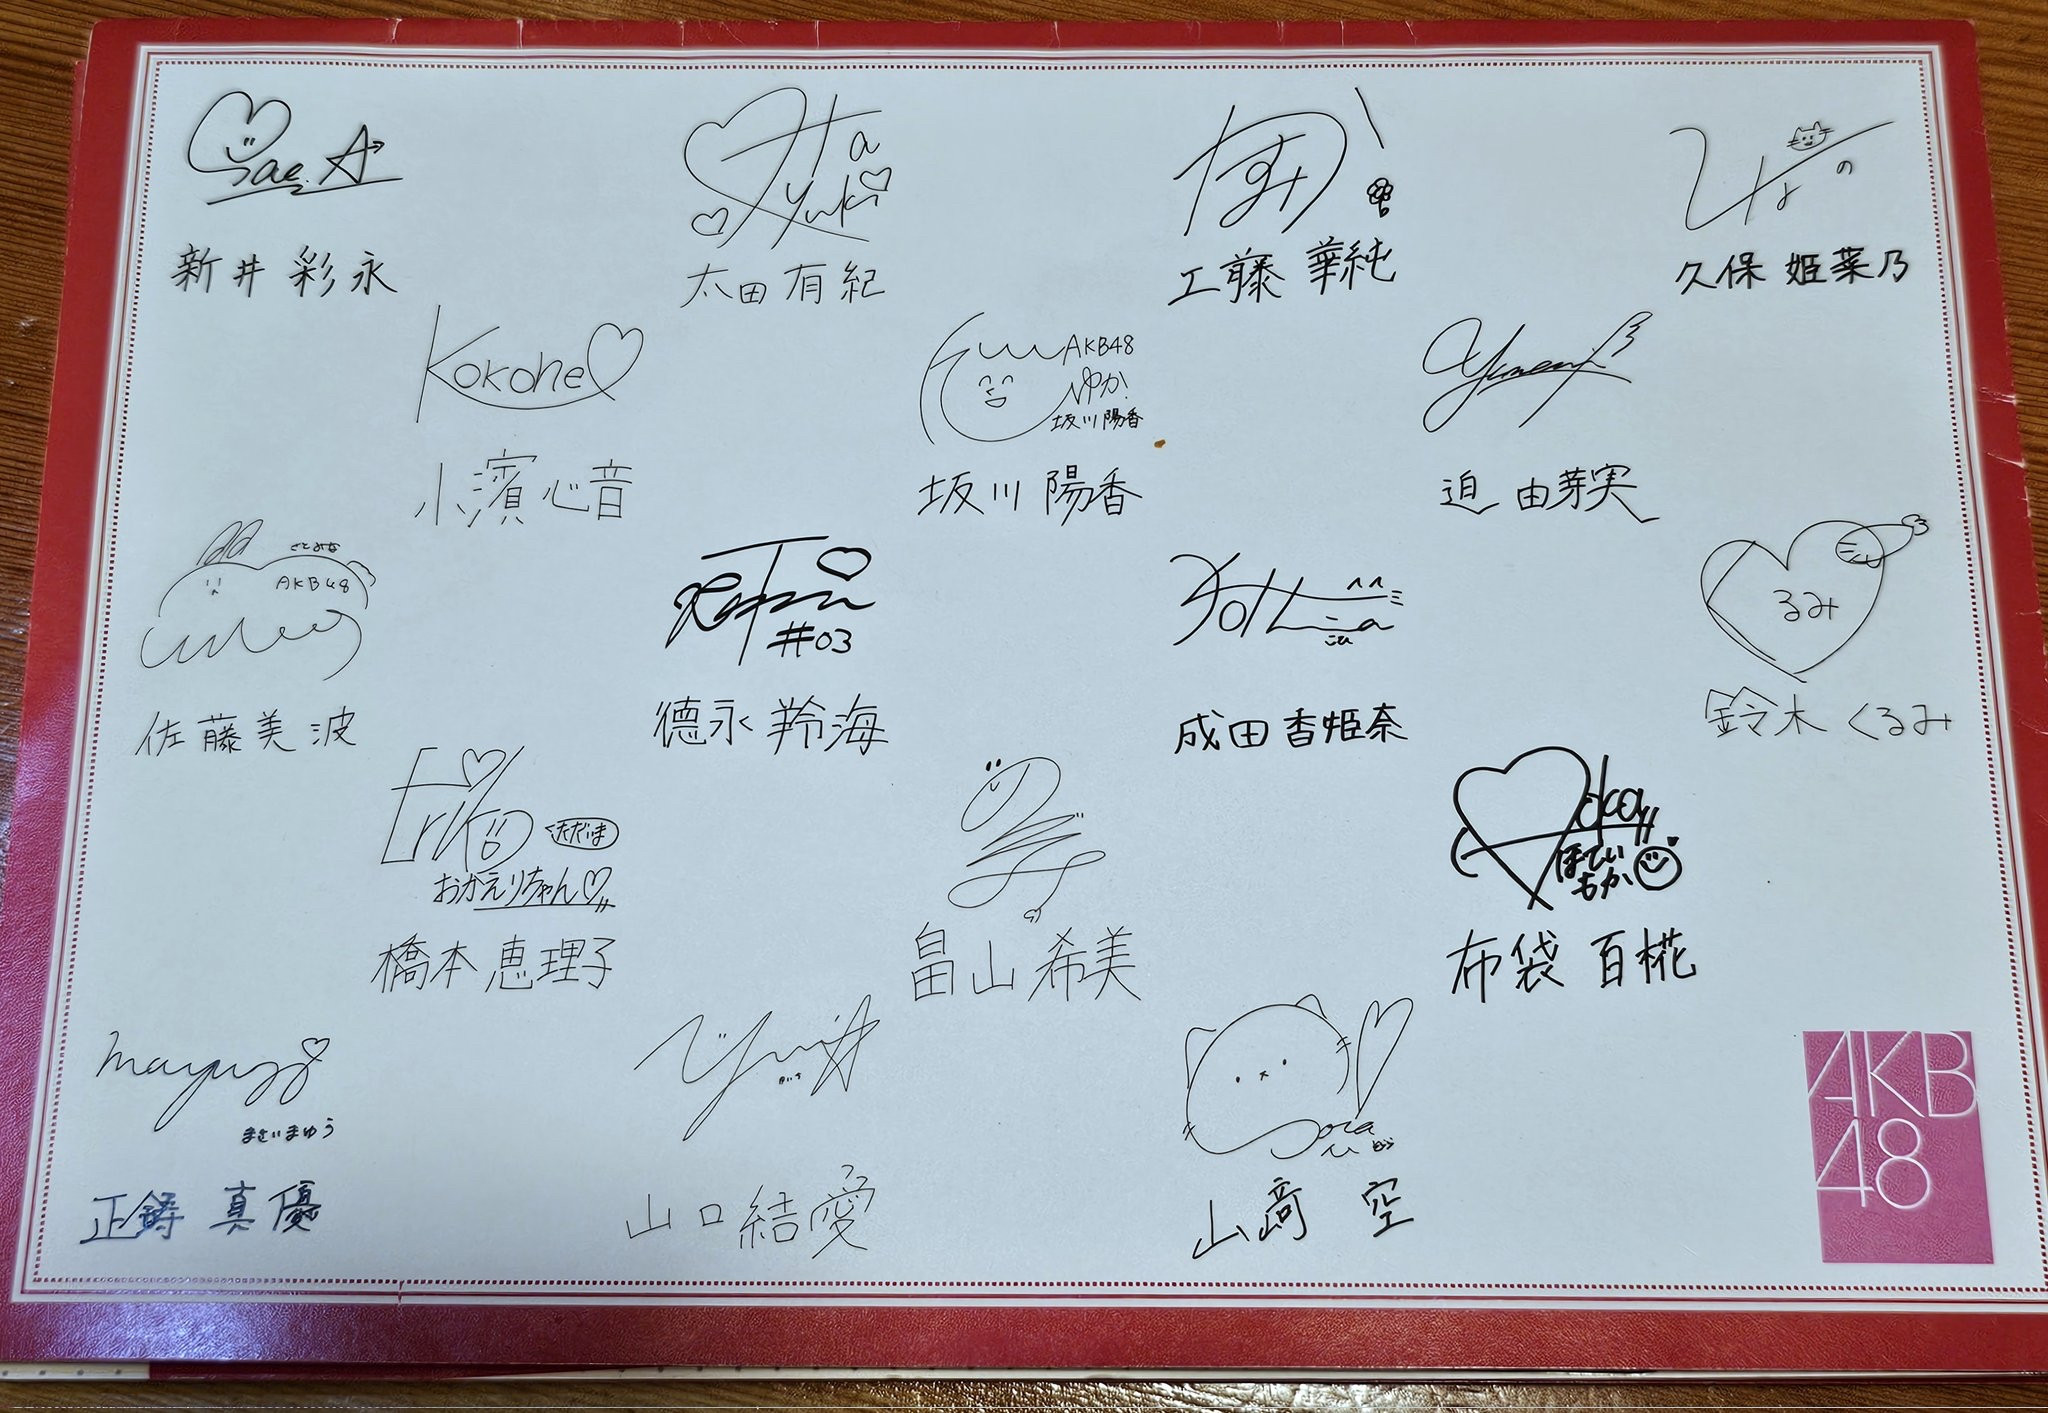 Sae. A
新井 彩永
Ota
Yuki
太田 有紀
かすみ
工藤 華純
ひなの
久保 姫菜乃
Kokone
小濱 心音
AKB48
ゆか!
坂川 陽香
坂川 陽香
迫 由芽実
さとみな
AKB48
佐藤 美波
#03
德永 羚海
成田 香姫奈
るみ
鈴木 くるみ
Eriko
ただいま
おかえりちゃん
橋本 恵理子
のぞみ
畠山 希美
ほてい
もか
布袋 百椛
mayuu
まさいまゆう
正鋳 真優
Yui
山口 結愛
Sora
山﨑 空
AKB
48